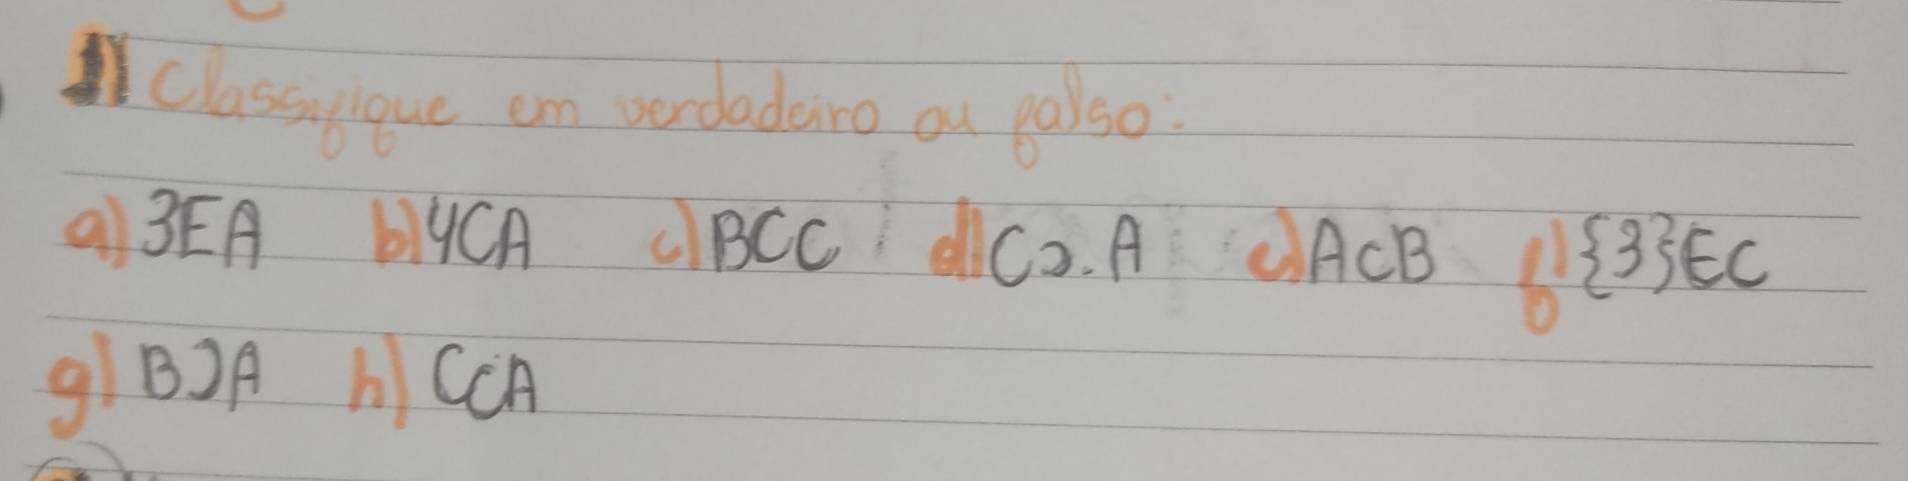 1) Classifique em verdadeiro ou falso:
a) 3EA b) 4CA c) BCC d) C⊃.A e) A⊂B f) {3}EC
g) B⊃A h) C⊂A